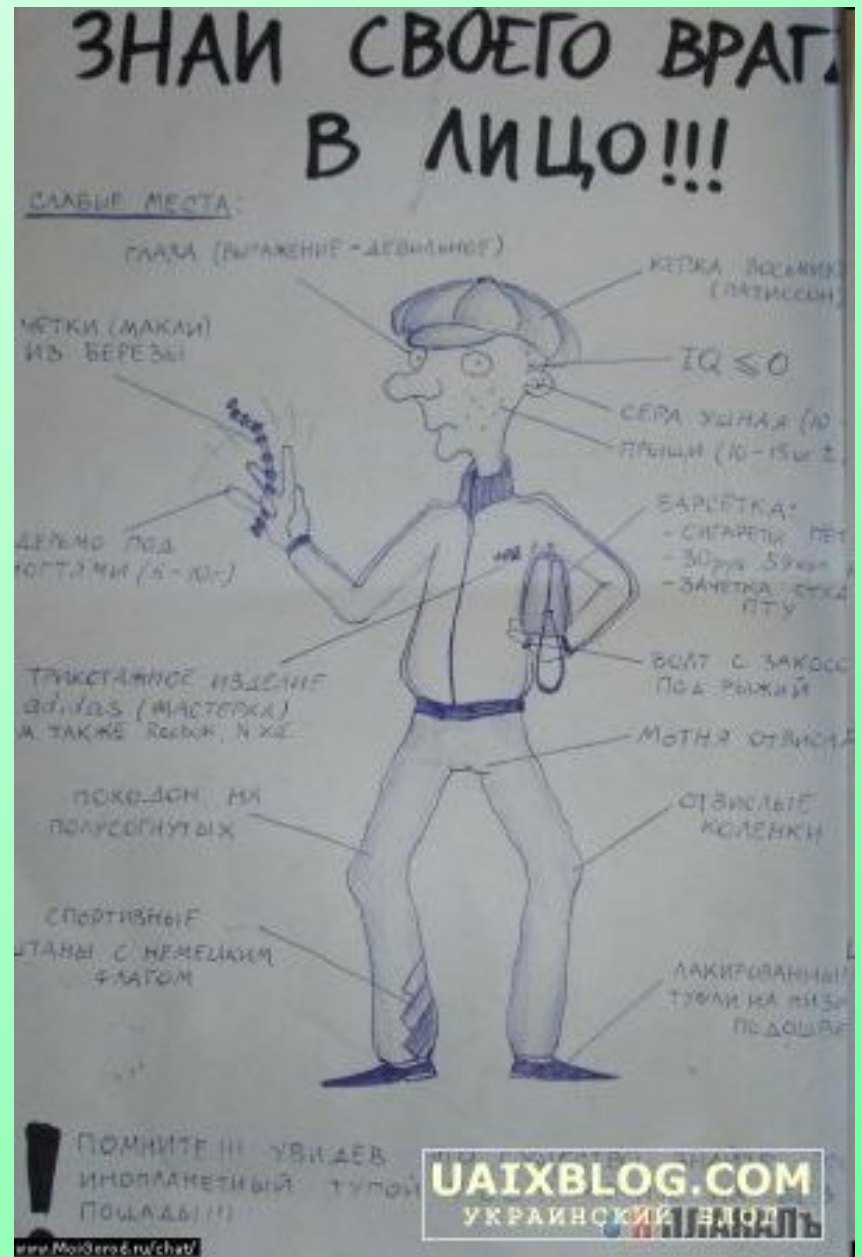 ЗНАЙ СВОЕГО ВРАГА
В ЛИЦО!!!
СЛАБЫЕ МЕСТА:
ГЛАЗА (ВЫРАЖЕНИЕ - ДЕБИЛЬНОЕ)
КЕПКА
ЧЁТКИ (МАКЛИ)
ИЗ БЕРЕЗЫ
IQ ≤ 0
СЕРА УШНАЯ (10
ПРЫЩИ (10-15шт ±
ДЕРЬМО ПОД
НОГТЯМИ
БАРСЕТКА:
- СИГАРЕТЫ ПЕТ
- 30руб
- ЗАЧЕТКА
ПТУ
ТРИКОТАЖНОЕ ИЗДЕЛИЕ
adidas (МАСТЕРКА)
А ТАКЖЕ Reebok,
БОЛТ С ЗАКОСО
ПОД РЫЖИЙ
МОТНЯ ОТВИСЛА
ПОХОДОН НА
ПОЛУСОГНУТЫХ
ОТВИСЛЫЕ
КОЛЕНКИ
СПОРТИВНЫЕ
ШТАНЫ С НЕМЕЦКИМ
ФЛАГОМ
ЛАКИРОВАННЫЕ
ТУФЛИ НА НИЗК
ПОДОШВЕ
! ПОМНИТЕ!!! УВИДЕВ
ИНОПЛАНЕТНЫЙ ТУПОЙ
ПОЩАДЫ!!!
UAIXBLOG.COM
УКРАИНСКИЙ БЛОГ
Я ПЛАКАЛЪ
www.MoiGorod.ru/chat/